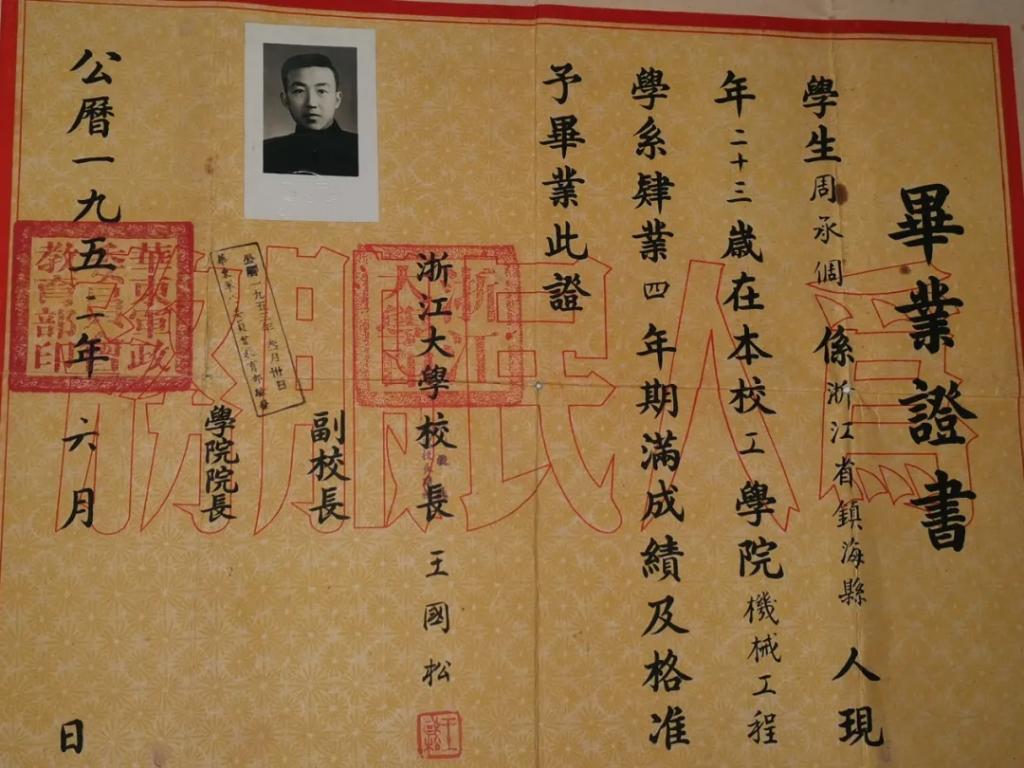 畢業證書
學生周承倜係浙江省鎮海縣人現
年二十三歲在本校工學院機械工程
學系肄業四年期滿成績及格准
予畢業此證
浙江大學校長王國松
副校長
學院院長
公曆一九五一年六月 日
為人民服務
華東軍政
委員會
教育部印
浙江
大學